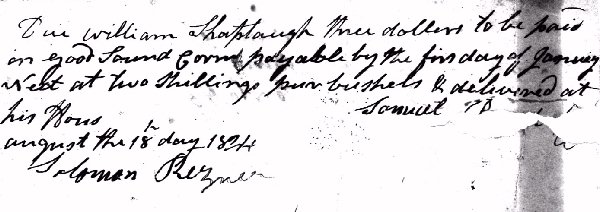 Due william Shaplaugh three dollars to be paid
in good Sound Corn payable by the firs day of Januey
Next at two Shillings pur bushels & delivered at
his Hous Samuel
august the 18 day 1824
Soloman Rezner